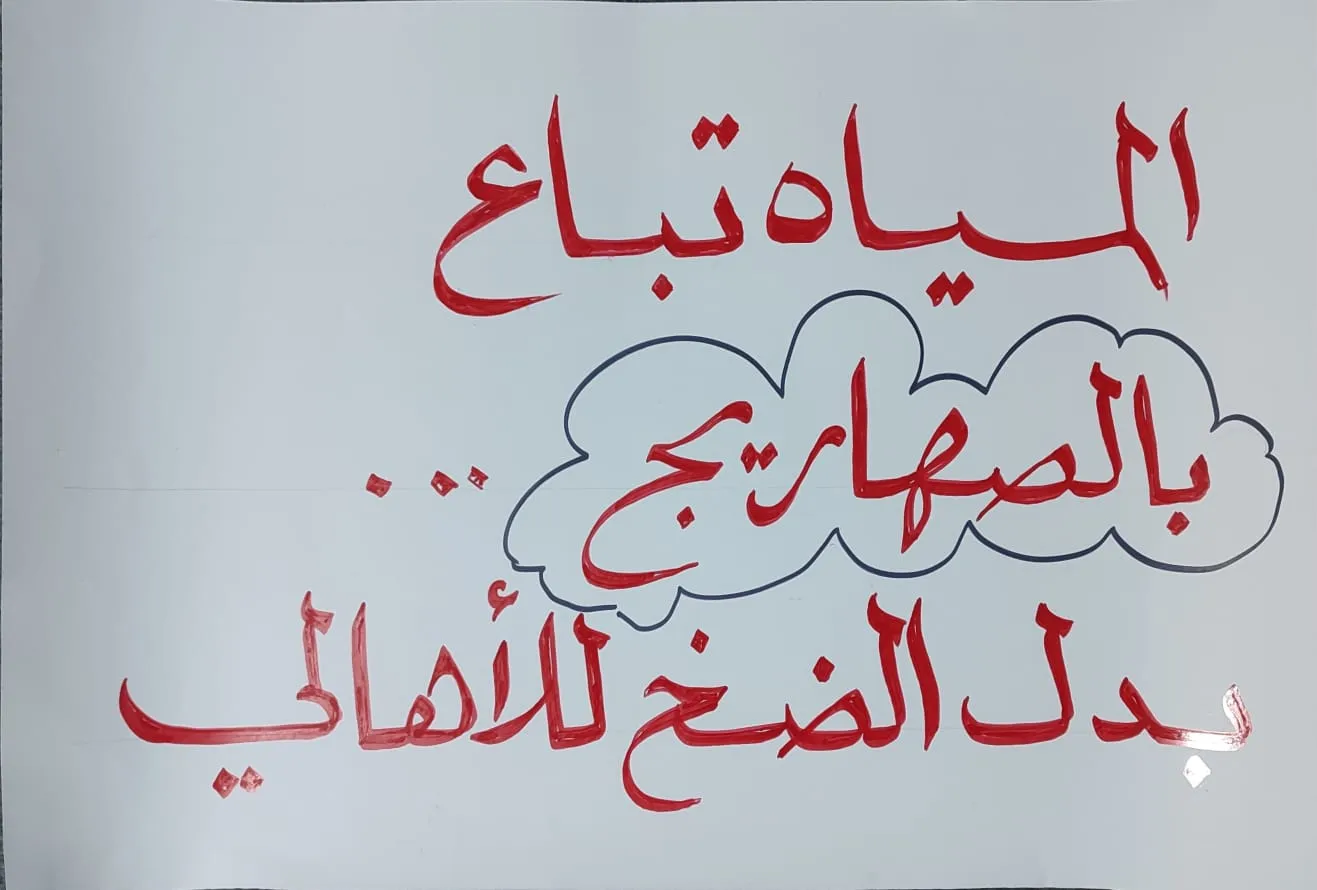 المياه تباع
بالصهاريج ...
بدل الضخ للأهالي